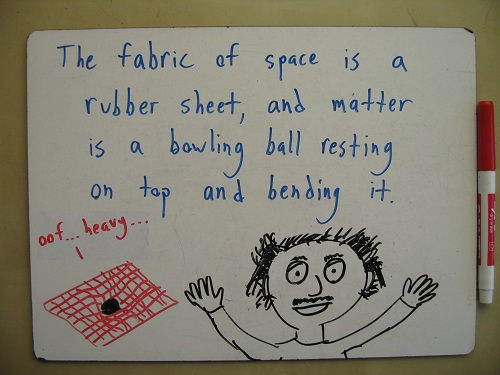 The fabric of space is a
rubber sheet, and matter
is a bowling ball resting
on top and bending it.
oof... heavy...